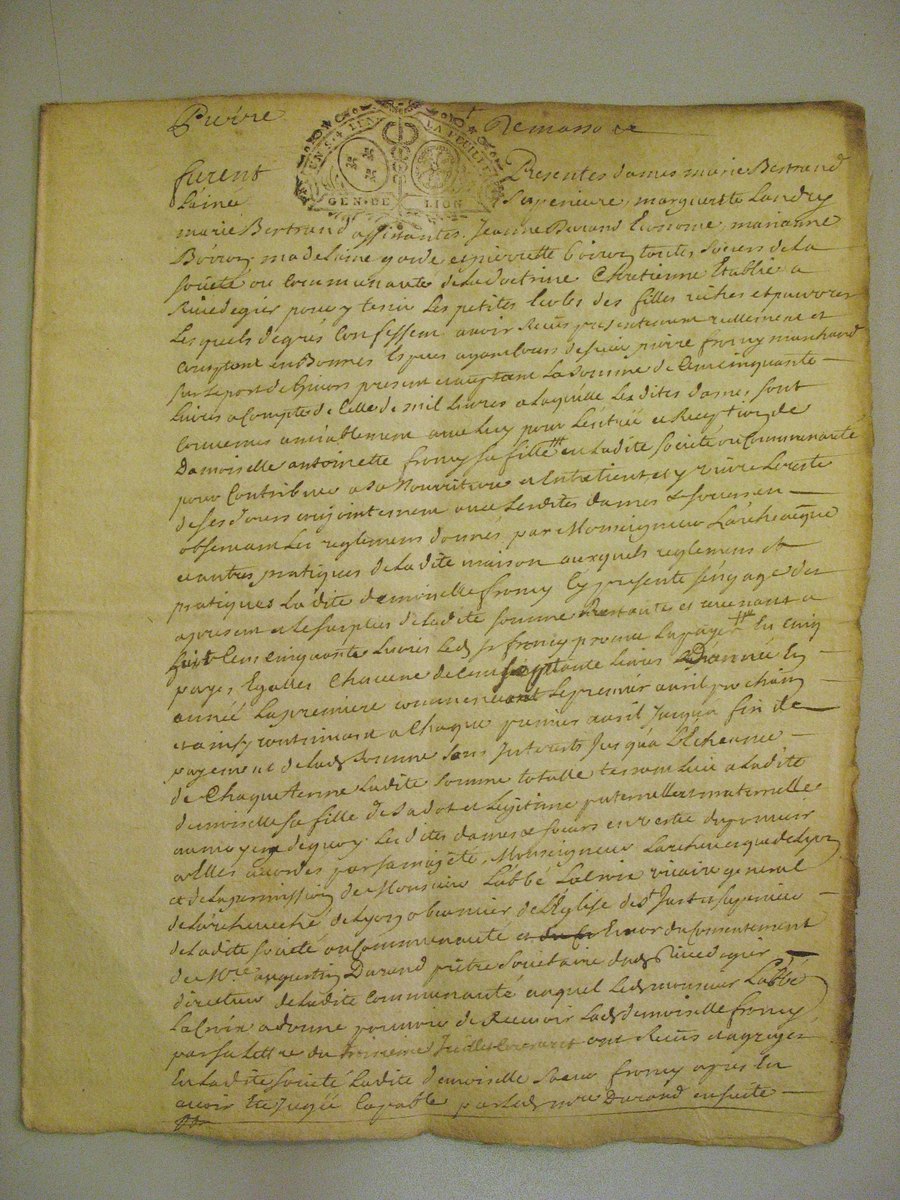 Pierre Demasso
GEN·DE LION
furent Presentes dames marie Bertrand
Lainée Superieure, marguerite Landry
marie Bertrand assistantes, Jeanne Durand Econome, marianne
Boiron madelaine et pierrette boiron toutes Soeurs de La
Societé ou Communauté de La doctrine Chretienne Etablie a
Rivedegier pour y tenir Les petites Ecoles des filles riches et pauvres
Lesquels degrés Confessent avoir Reçus presentement reellement et
comptant en Bonnes Especes ayant Cours de sieur pierre froncy marchand
sur Le port de Givors present et acceptant La Somme de Cent cinquante
Livres a Compte de Celle de mil Livres a Laquelle Les dites dames sont
Convenues amiablement avec Luy pour L'entrée et Reception de
Damoiselle antoinette froncy sa fille en Ladite Societé ou Communauté
pour Contribuer a Sa Nourriture et Entretient et y vivre Le reste
de Ses Jours conjointement avec Lesdites dames et Soeurs en
observant Les reglemens donnés par Monseigneur Larcheveque
et autres pratiques de Ladite maison auxquels reglemens et
pratiques Ladite demoiselle froncy Cy presente Sengage des
apresent et Le Surplus de Ladite Somme Restante et revenant a
huit Cens cinquante Livres Led. sr froncy promet La payer En cinq
payes Egalles Chacune de Cent septante Livres D'année En
année La premiere commencant Le premier avril prochain
et ainsy continuant a Chaque premier avril Jusqu'a fin de
payement de Lad. Somme Sans Interets Jusqu'a L'Echeance
de Chaque terme Ladite Somme totalle tenant Lieu a Ladite
demoiselle sa fille de Sa dot et Legitime paternelle et maternelle
au moyen de quoy Lesdites dames et Soeurs en vertu du pouvoir
a Elles accordés par Sa majesté, Monseigneur Larcheveque de Lyon
et de La permission de Monsieur L'abbé Lacroix vicaire general
de Larcheveché de Lyon obeancier de L'Eglise de St Just et Superieur
de Ladite Societé ou Communauté et Encor du Consentement
de Mre augustin Durand prêtre Societaire dud. Rivedegier
directeur de Ladite Communauté auquel Led. monsieur Labbé
Lacroix a donné pouvoir de Recevoir Lad. demoiselle froncy
par Sa Lettre du troisieme Juillet Courant ont Reçus et agregé
En Ladite Societé Ladite demoiselle Soeur froncy apres En
avoir Eté Jugée Capable par Led. mre Durand ensuite